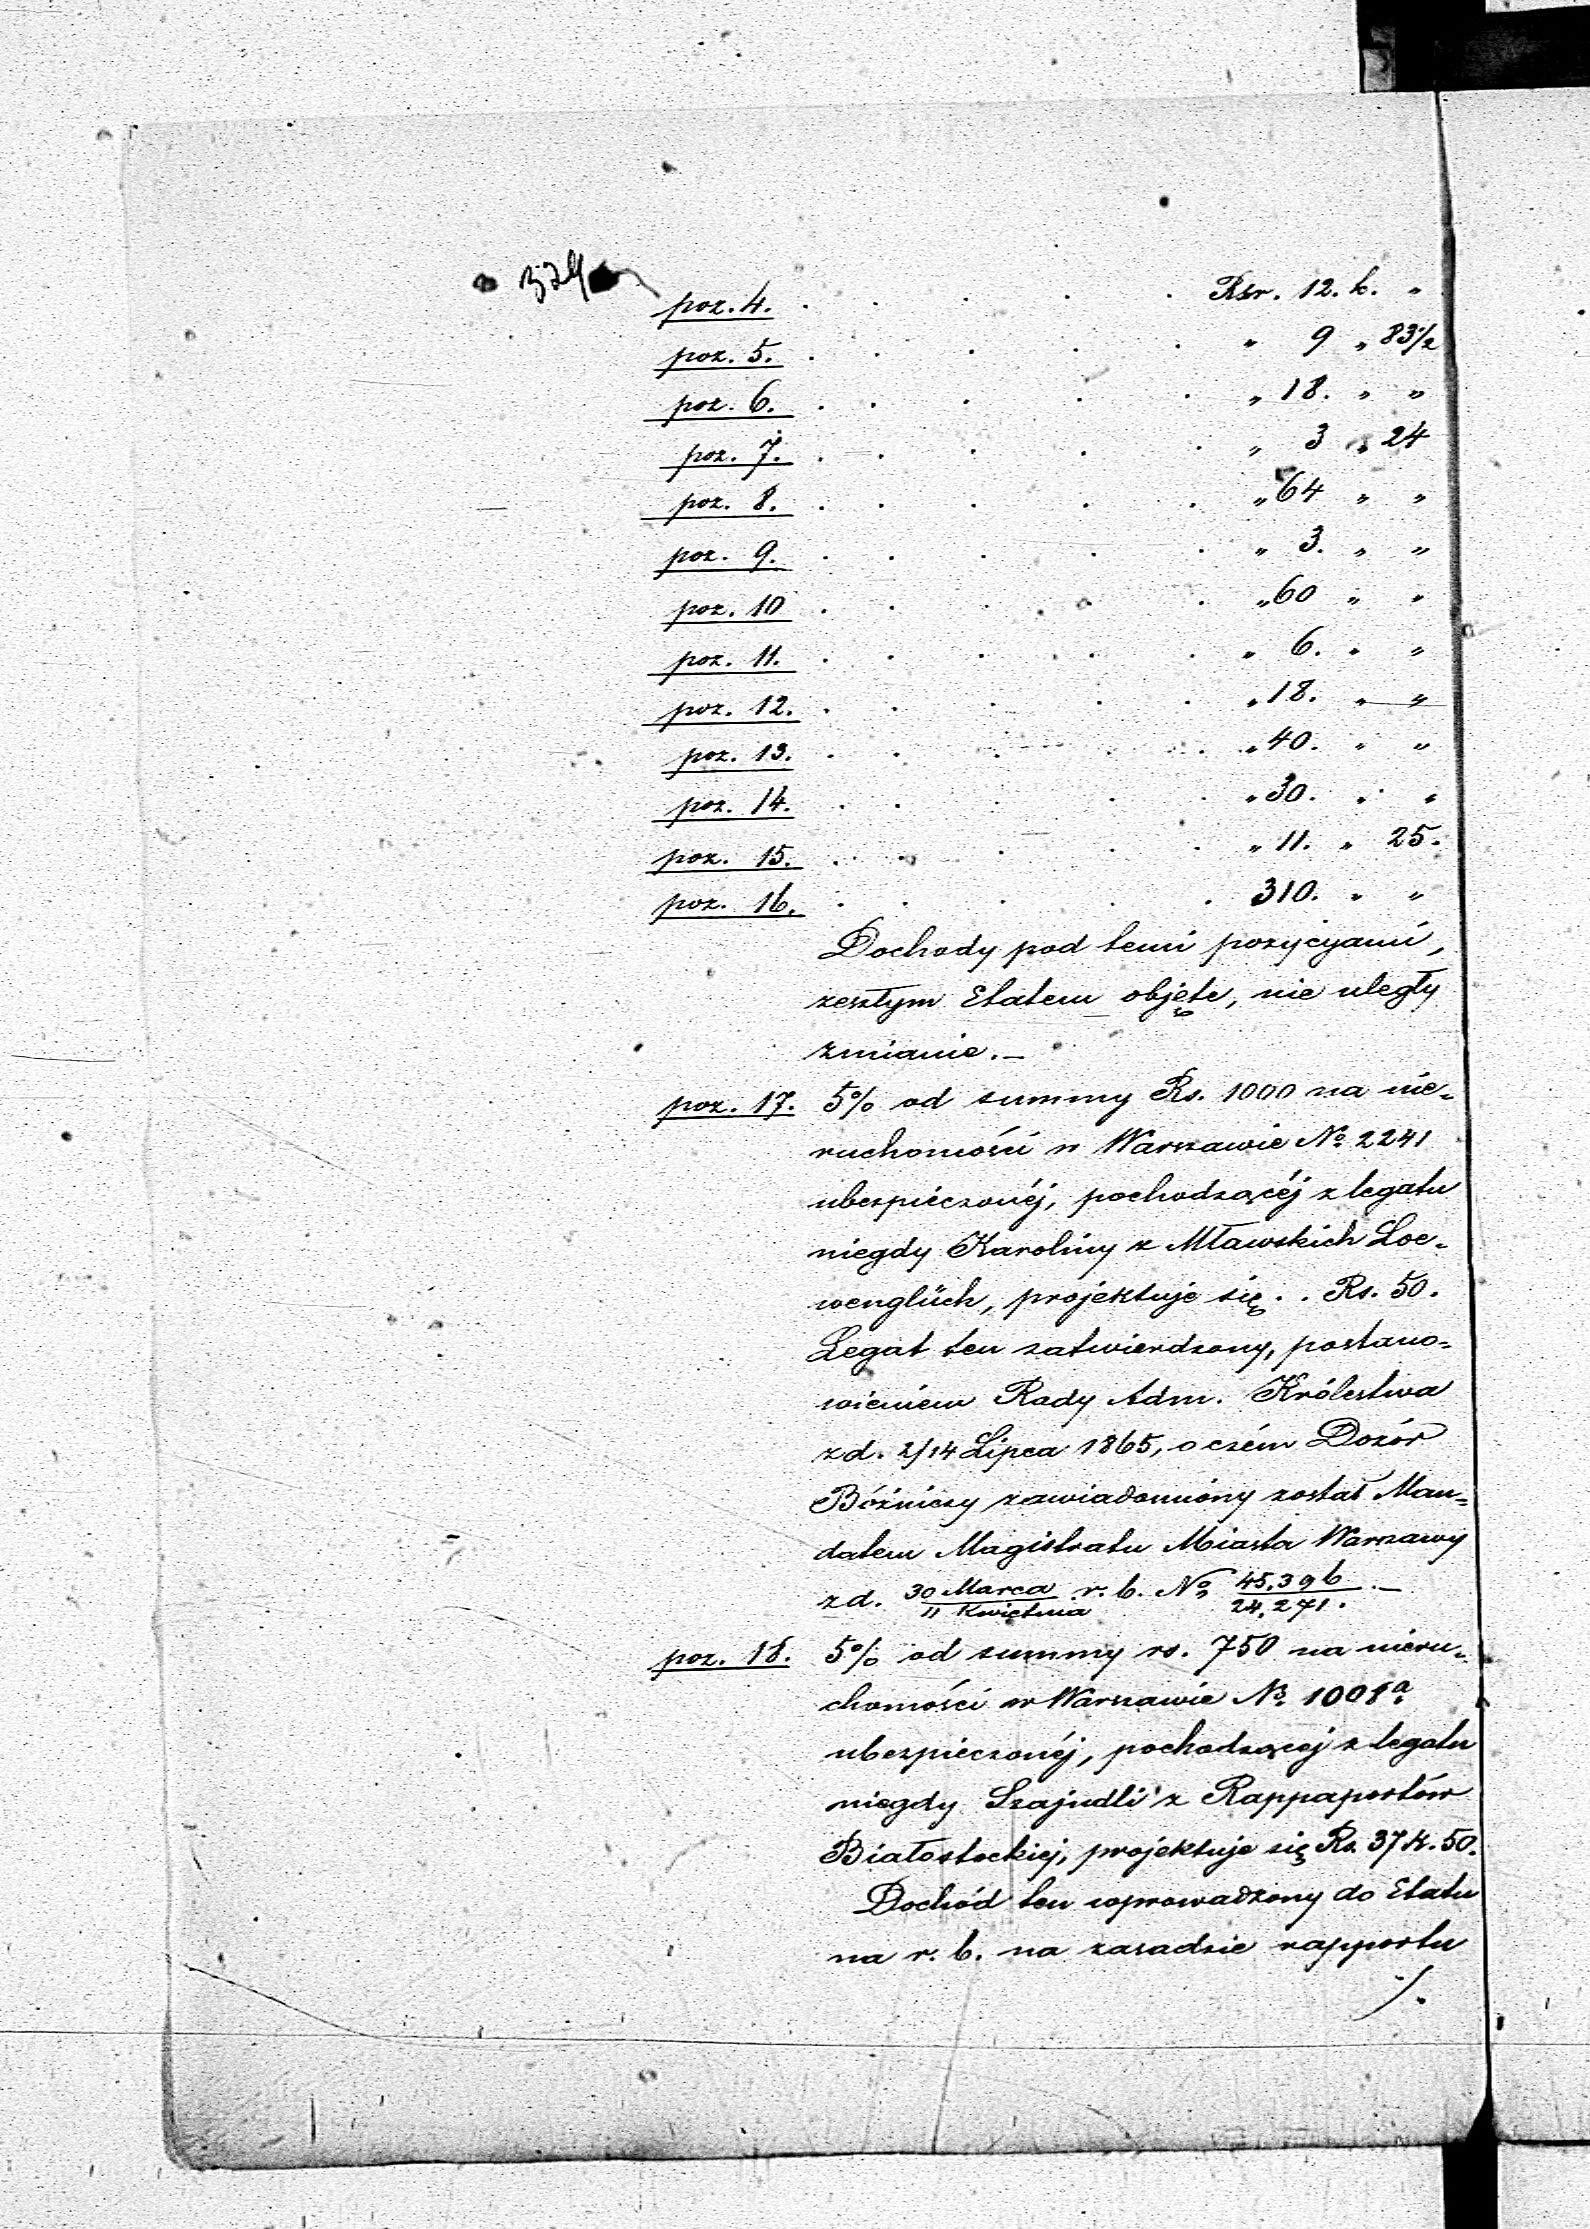 poz. 4. . . . . . Rsr. 12. k. "
poz. 5. . . . . . " 9 " 83 1/2
poz. 6. . . . . . " 18. " "
poz. 7. . . . . . " 3 " 24
poz. 8. . . . . . " 64 " "
poz. 9. . . . . . " 3. " "
poz. 10 . . . . . " 60 " "
poz. 11. . . . . . " 6. " "
poz. 12. . . . . . " 18. " "
poz. 13. . . . . . " 40. " "
poz. 14. . . . . . " 30. " "
poz. 15. . . . . . " 11. " 25.
poz. 16. . . . . . 310. " "
Dochody pod temi pozycyami,
zeszłym Etatem objęte, nie uległy
zmianie.—
poz. 17. 5% od summy Rs. 1000 na nie-
ruchomości w Warszawie No 2241
ubezpieczonéj, pochodzącéj z legatu
niegdy Karoliny z Mławskich Loe-
wenglück, projektuje się . . Rs. 50.
Legat ten zatwierdzony, postano-
wieniem Rady Adm. Królestwa
z d. 2/14 Lipca 1865, o czém Dozór
Bóźniczy zawiadomiony został Man-
datem Magistratu Miasta Warszawy
z d. 30 Marca/11 Kwietnia r. b. No 45,396/24,271.—
poz. 18. 5% od summy rs. 750 na nieru-
chomości w Warszawie No 1008a
ubezpieczonéj, pochodzącej z legatu
niegdy Szajndli z Rappaportów
Białostockiej, projektuje się Rs. 37 k. 50.
Dochód ten wprowadzony do Etatu
na r. b. na zasadzie rapportu
./.